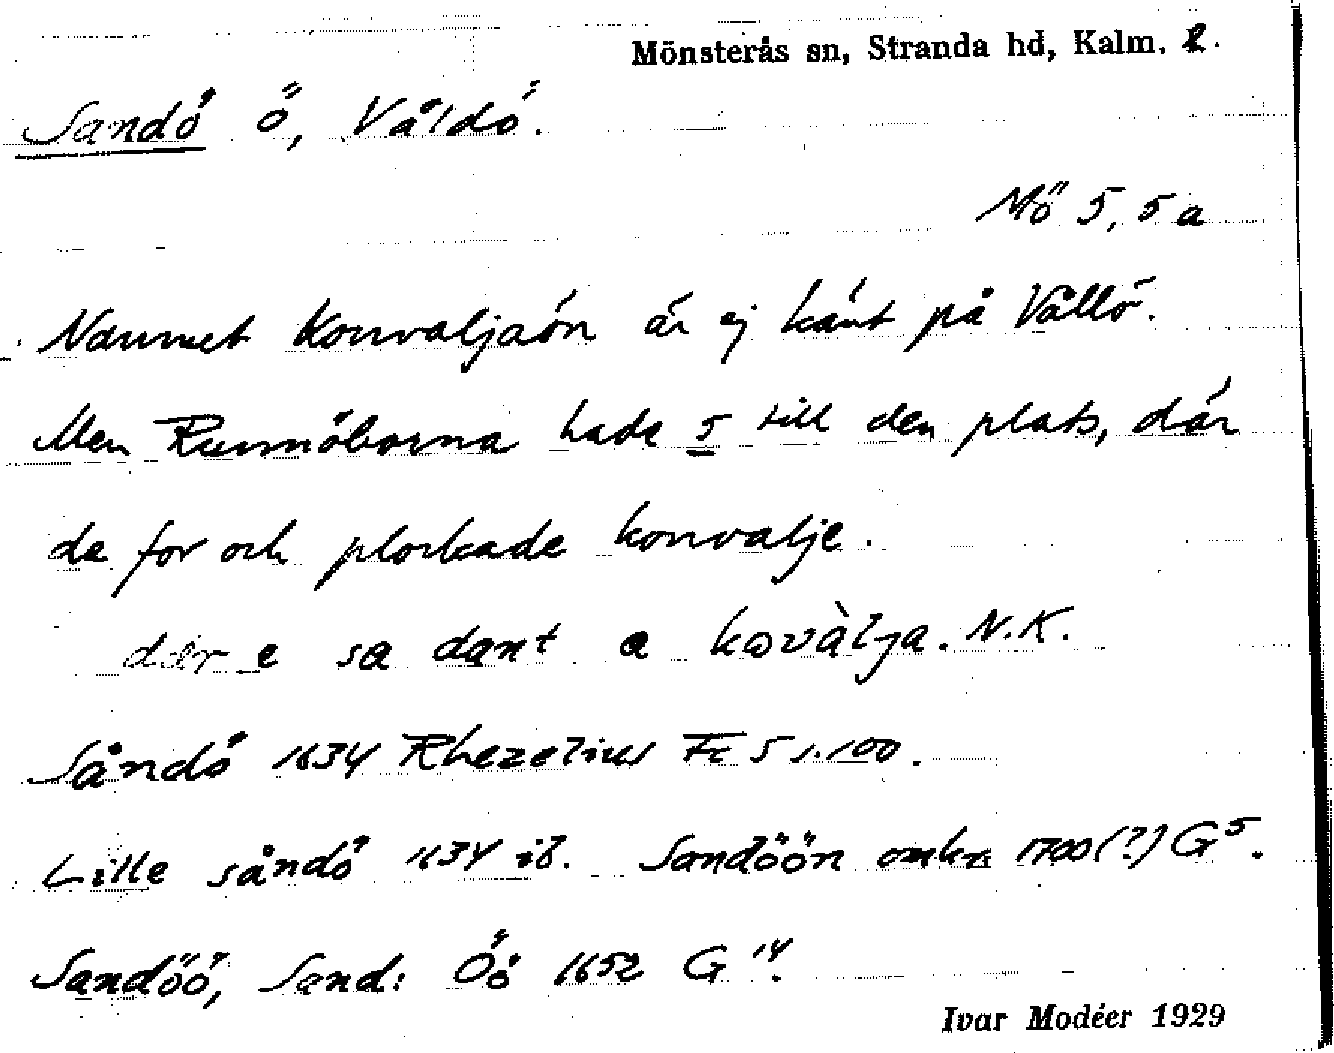 Mönsterås sn, Stranda hd, Kalm. l.
Sandö ö, Våldö.
Mö 5, 5 a
Namnet Konvaljaön är ej känt på Vållö.
Men Runnöborna hade 5 till den plats, där
de for och plockade konvalje.
där e sa dant a kovàlja. N.K.
Såndö 1634 Rhezelius Fc 5 s. 100.
Lille såndö 1634 ib. Sandöön omkr. 1700 (?) G5.
Sandöö, Sand: Öö 1652 G 14.
Ivar Modéer 1929